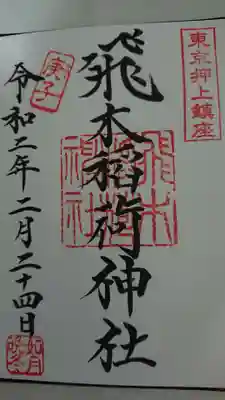 東京押上鎮座
飛木稲荷神社
飛木稲荷神社
庚子
令和二年二月二十四日